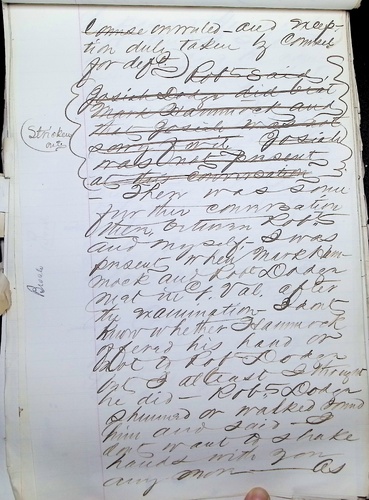 overruled - and excep-
tion duly taken by Counsel
for defts) Robt said
Josiah Dodge did beat
Mark Hammock and
that Josiah was not
sorry of it Josiah
was not present
at this conversation
Stricken
out
There was some
further conversation
then, between Robt
and myself - I was
present when Mark Ham-
mock and Robt Dodge
met in C. Val. after
the examination I dont
know whether Hammock
offered his hand or
not to Robt Dodge
but I at least I thought
he did - Robt Dodge
shunned or walked round
him and said - I
dont want to shake
hands with you
any more - As